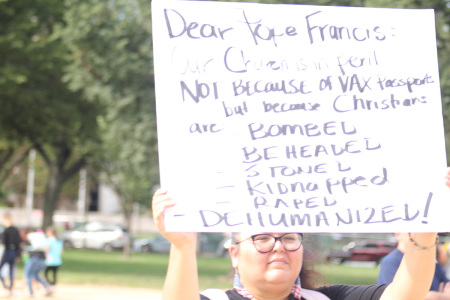 Dear Pope Francis:
Our Church is in peril
NOT BECAUSE OF VAX Passports
but because Christians
are - BOMBED
- BEHEADED
- STONED
- Kidnapped
- RAPED
- DEHUMANIZED!